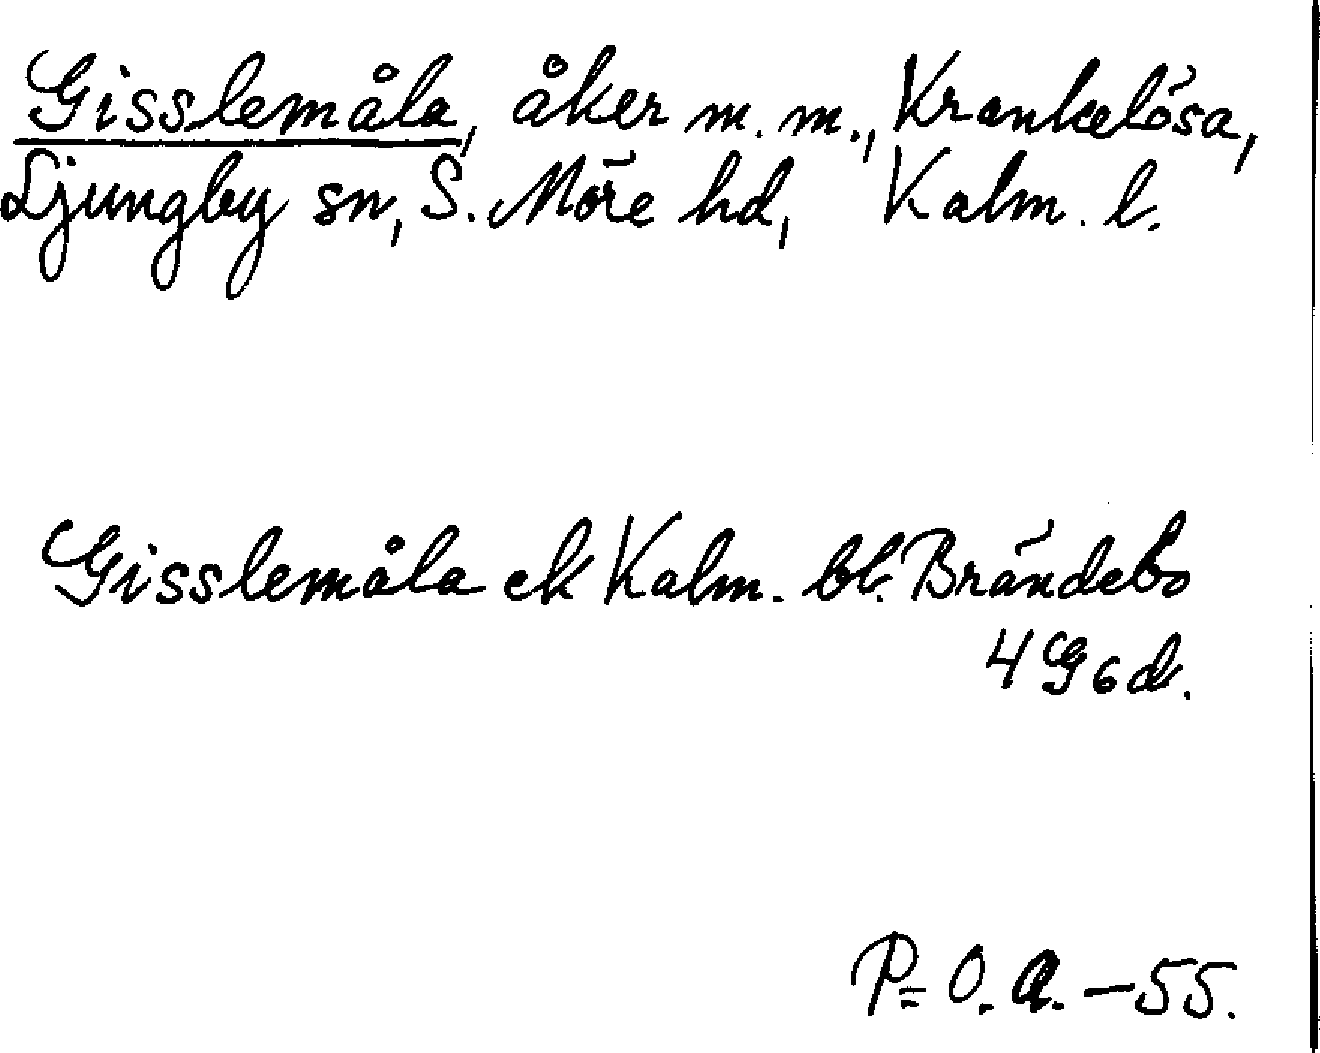 Gisslemåla, åker m.m., Krankelösa,
Ljungby sn, S. Möre hd, Kalm. l.
Gisslemåla ek Kalm. bl. Brändebo
4 G 6 d.
P=O.A. -55.